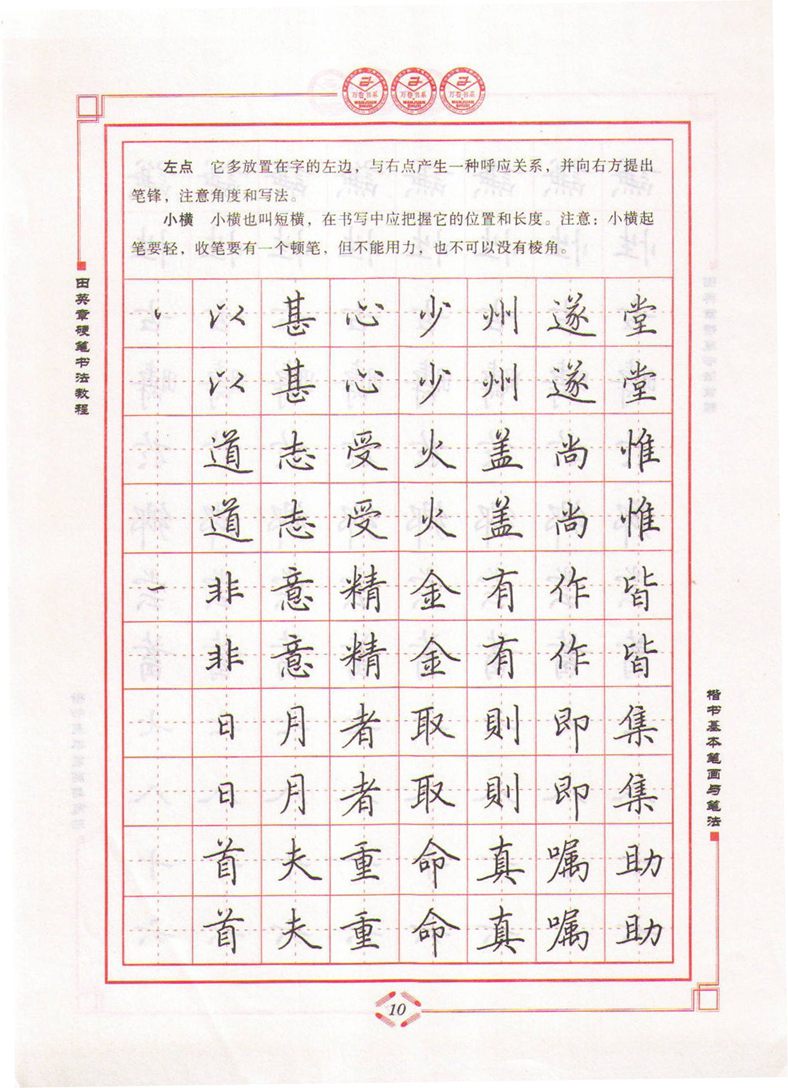 万卷书系 万卷书系 万卷书系
左点 它多放置在字的左边，与右点产生一种呼应关系，并向右方提出
笔锋，注意角度和写法。
小横 小横也叫短横，在书写中应把握它的位置和长度。注意：小横起
笔要轻，收笔要有一个顿笔，但不能用力，也不可以没有棱角。
田英章硬笔书法教程
丶 以 甚 心 少 州 遂 堂
以 甚 心 少 州 遂 堂
道 志 受 火 盖 尚 惟
道 志 受 火 盖 尚 惟
一 非 意 精 金 有 作 皆
非 意 精 金 有 作 皆
日 月 者 取 則 即 集
日 月 者 取 則 即 集
首 夫 重 命 真 嘱 助
首 夫 重 命 真 嘱 助
楷书基本笔画与笔法
10